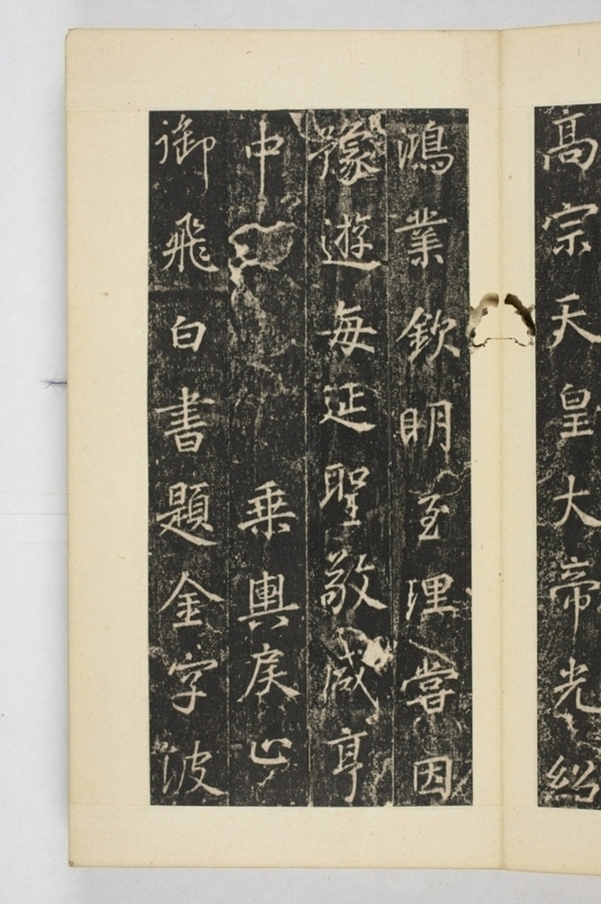 高宗天皇大帝光紹
鴻業欽明至理嘗因
豫遊每延聖敬咸亨
中乘輿戾止
御飛白書題金字波